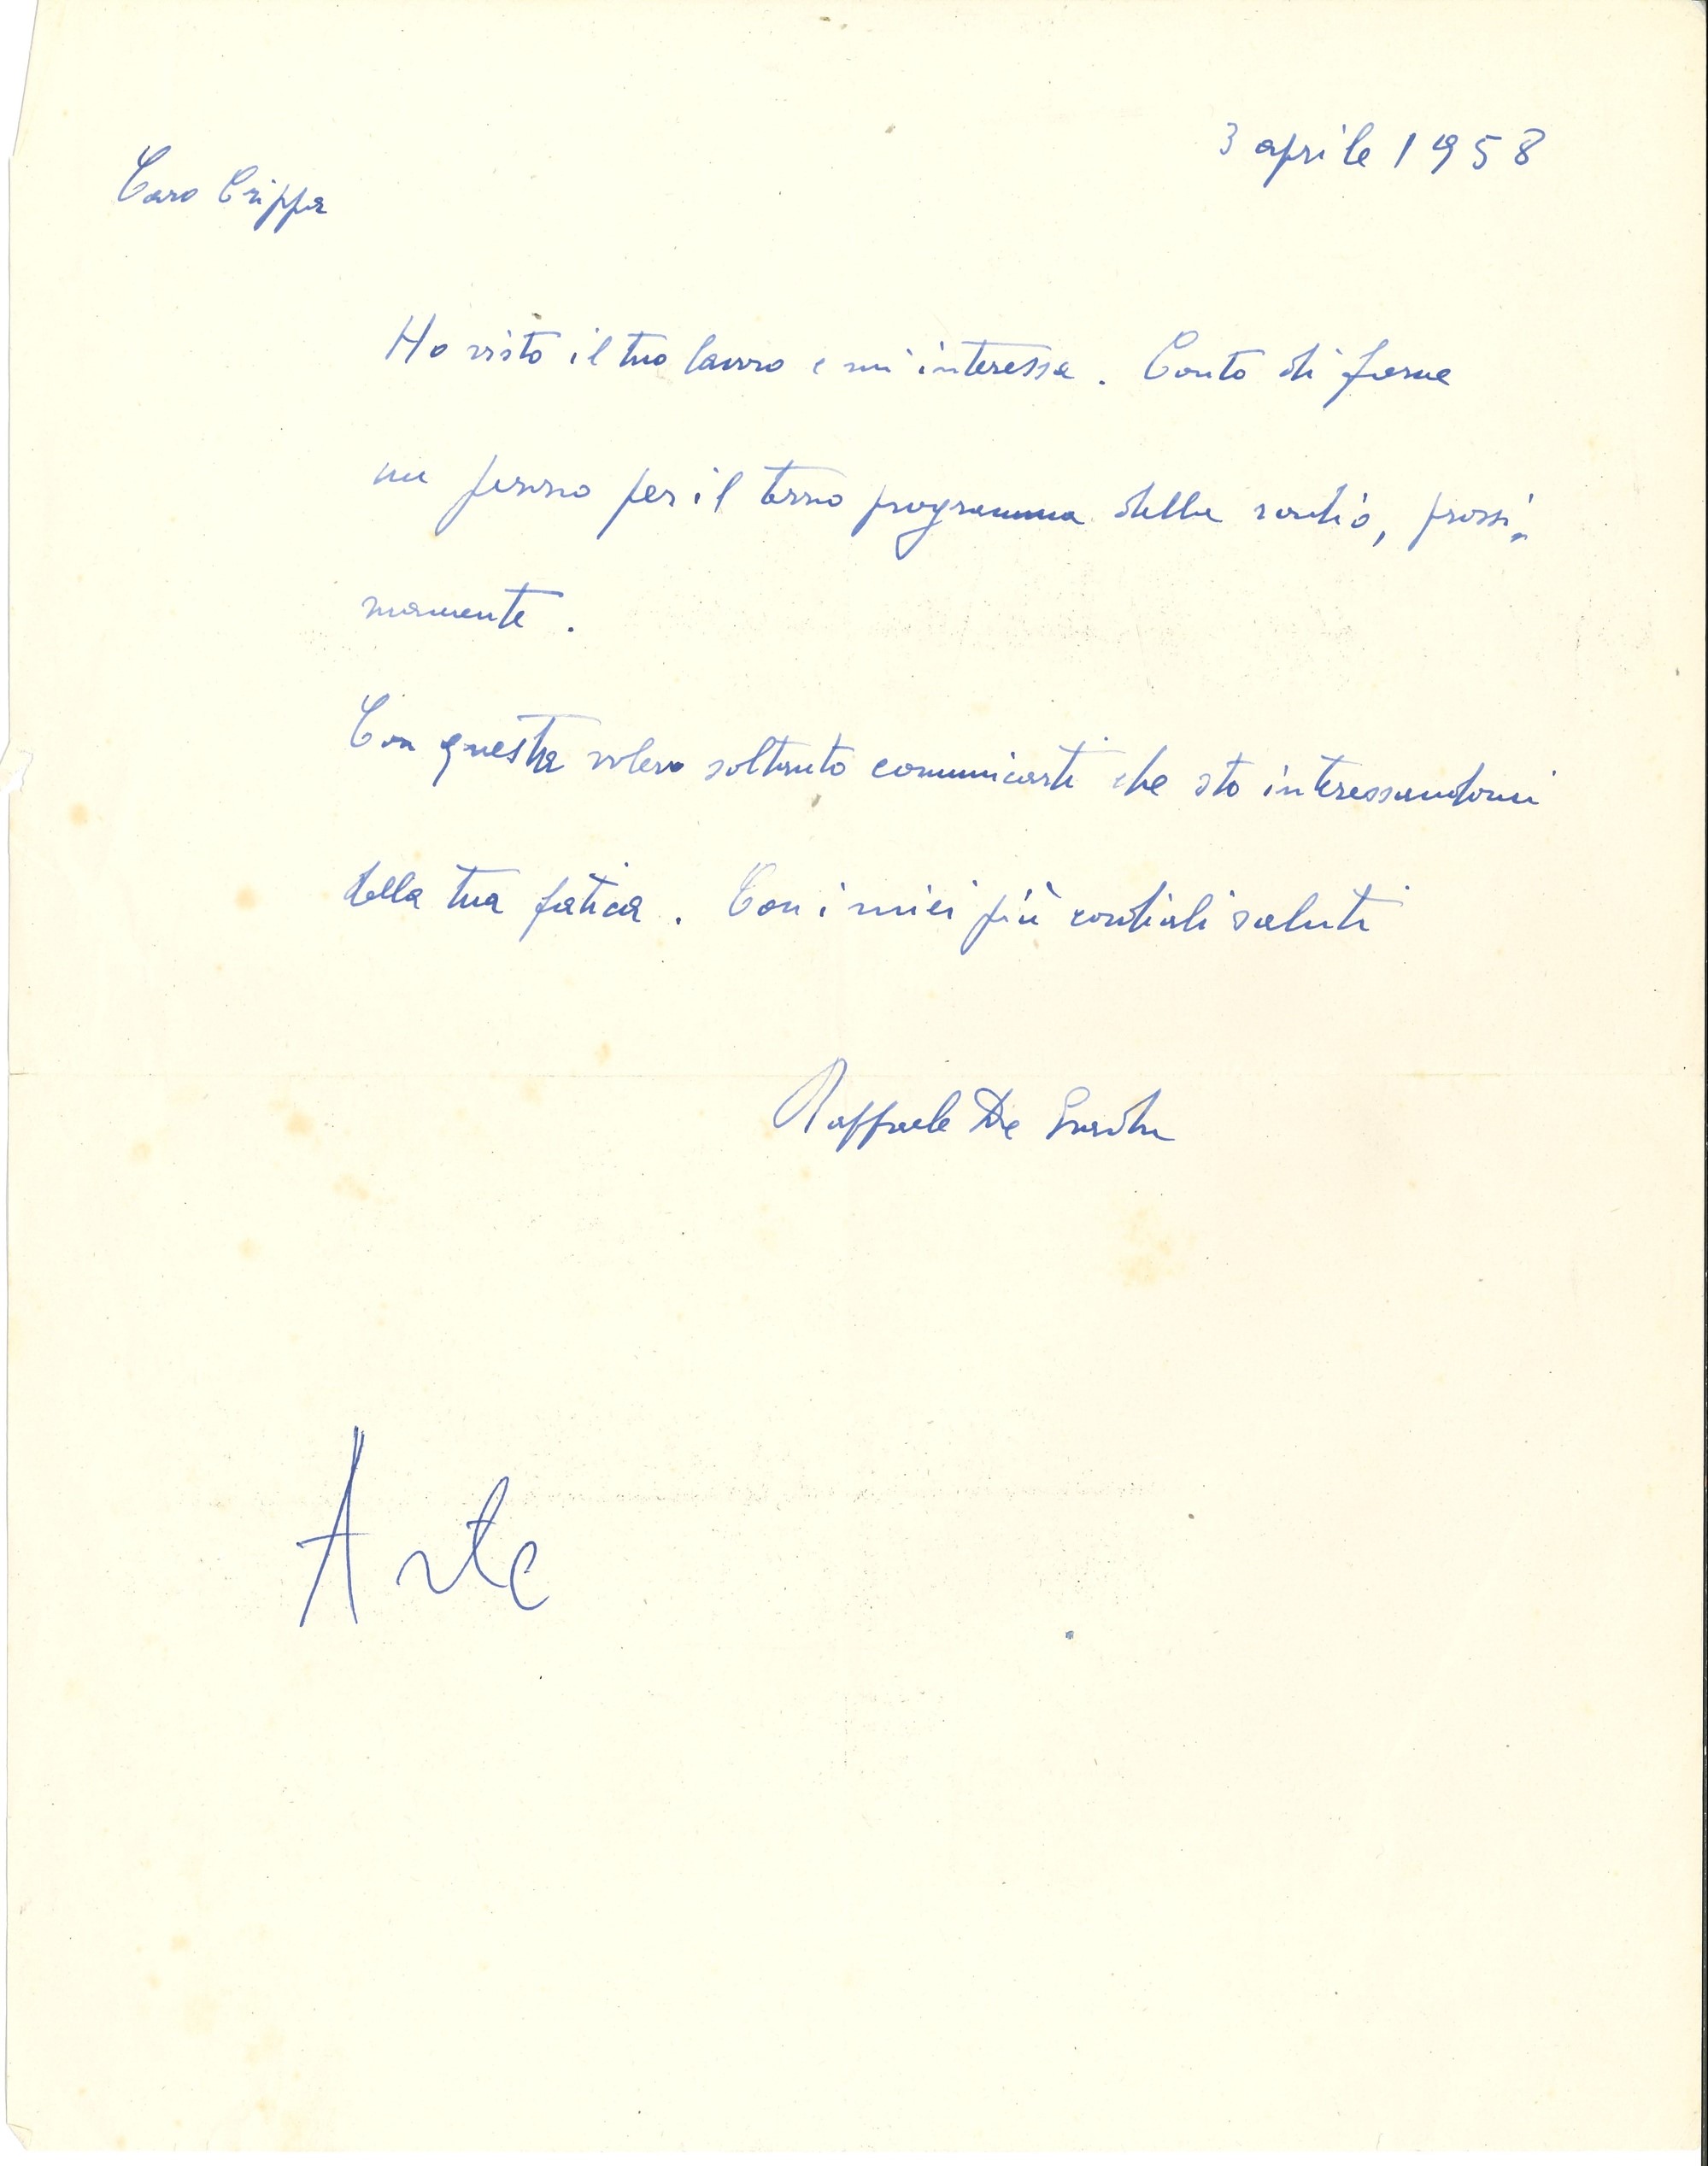 3 aprile 1958
Caro Crippa
Ho visto il tuo lavoro e mi interessa. Conto di farne
un pezzo per il terzo programma della radio, prossi=
mamente.
Con questa volevo soltanto comunicarti che sto interessandomi
della tua fatica. Con i miei più cordiali saluti
Raffaele De Grada
Arte